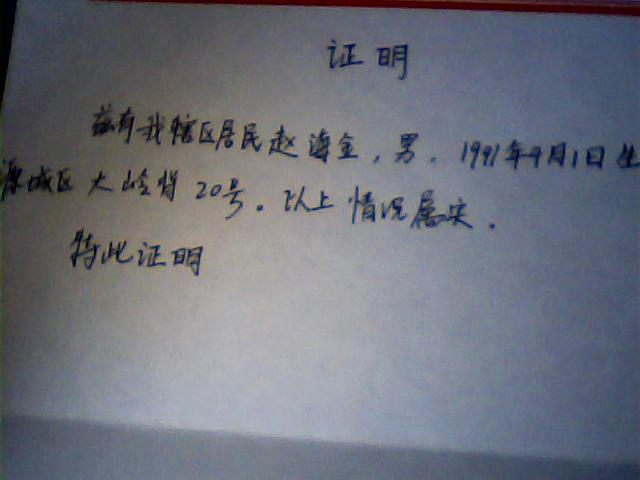 证明
兹有我辖区居民赵海金，男，1991年9月1日生
源城区大岭背20号。以上情况属实。
特此证明